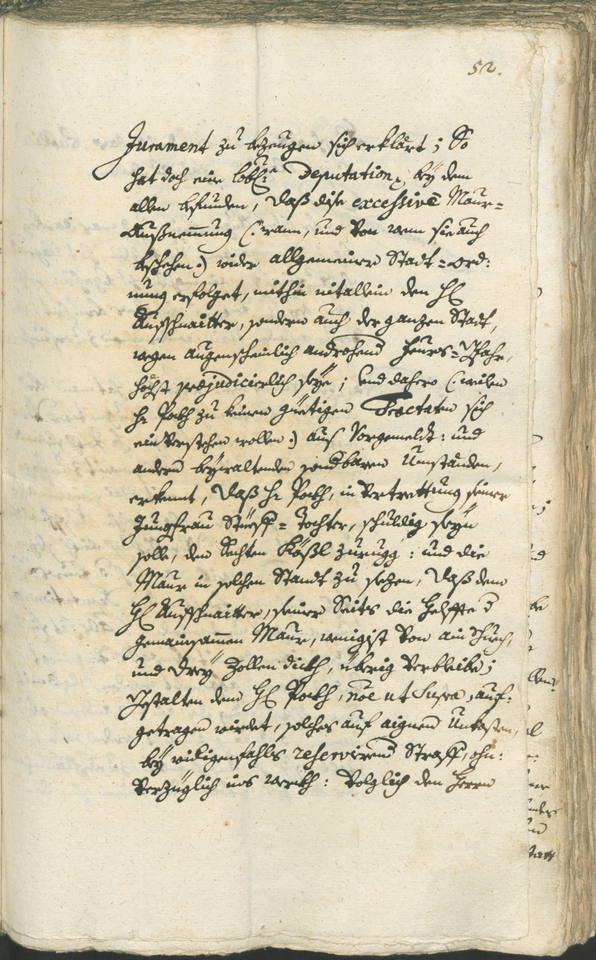 52.
Jurament zu bezeugen sich erklärt; So
hat doch eine löbl: Deputation, bey dem
allen befunden, daß dise excessive Maur=
Außnemmung (:wann, und von wem sie auch
beschehen:) wider allgemeine Stadt=Ord:
nung erfolget, mithin nit allein den H:
Aufschnaitter, sondern auch der ganzen Stadt,
wegen augenscheinlich androhend Feurs=Gfahr,
höchst præjudicierlich seye; und dahero (:weilen
H: Poch zu keinen güetigen Tractaten sich
einverstehen wollen:) auß Vorgemeldt: und
andern beywaltenden Umständen,
erkennt, daß H: Poch, in Vertrettung seiner
Jungfrau Stieff=Tochter, schuldig seyn
solle, den zurugg: und die
Maur in solchen Standt zu sezen, daß dem
H: Aufschnaitter, seiner Seits die Helffte d
gemainsammen Maur, wenigist von ain Schuech,
und drey Zollen dickh, übrig verbleibe;
Gestalten dem H: Poch, noe ut supra, auf=
getragen wirdet, solches auf aignen Unkosten,
bey widrigenfahls reservirend Straff, ohn:
verzüglich ins werkh: Volglich den Herrn